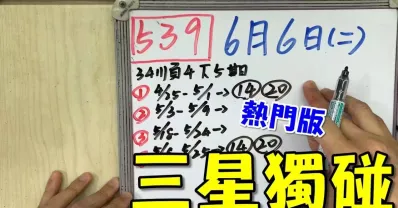 539 6月6日(二)
34順4下5期
① 4/25-5/1→ ⑭⑳
② 5/3-5/9→
③ 5/18-5/24→ ⑭⑳
熱門版
三星獨碰